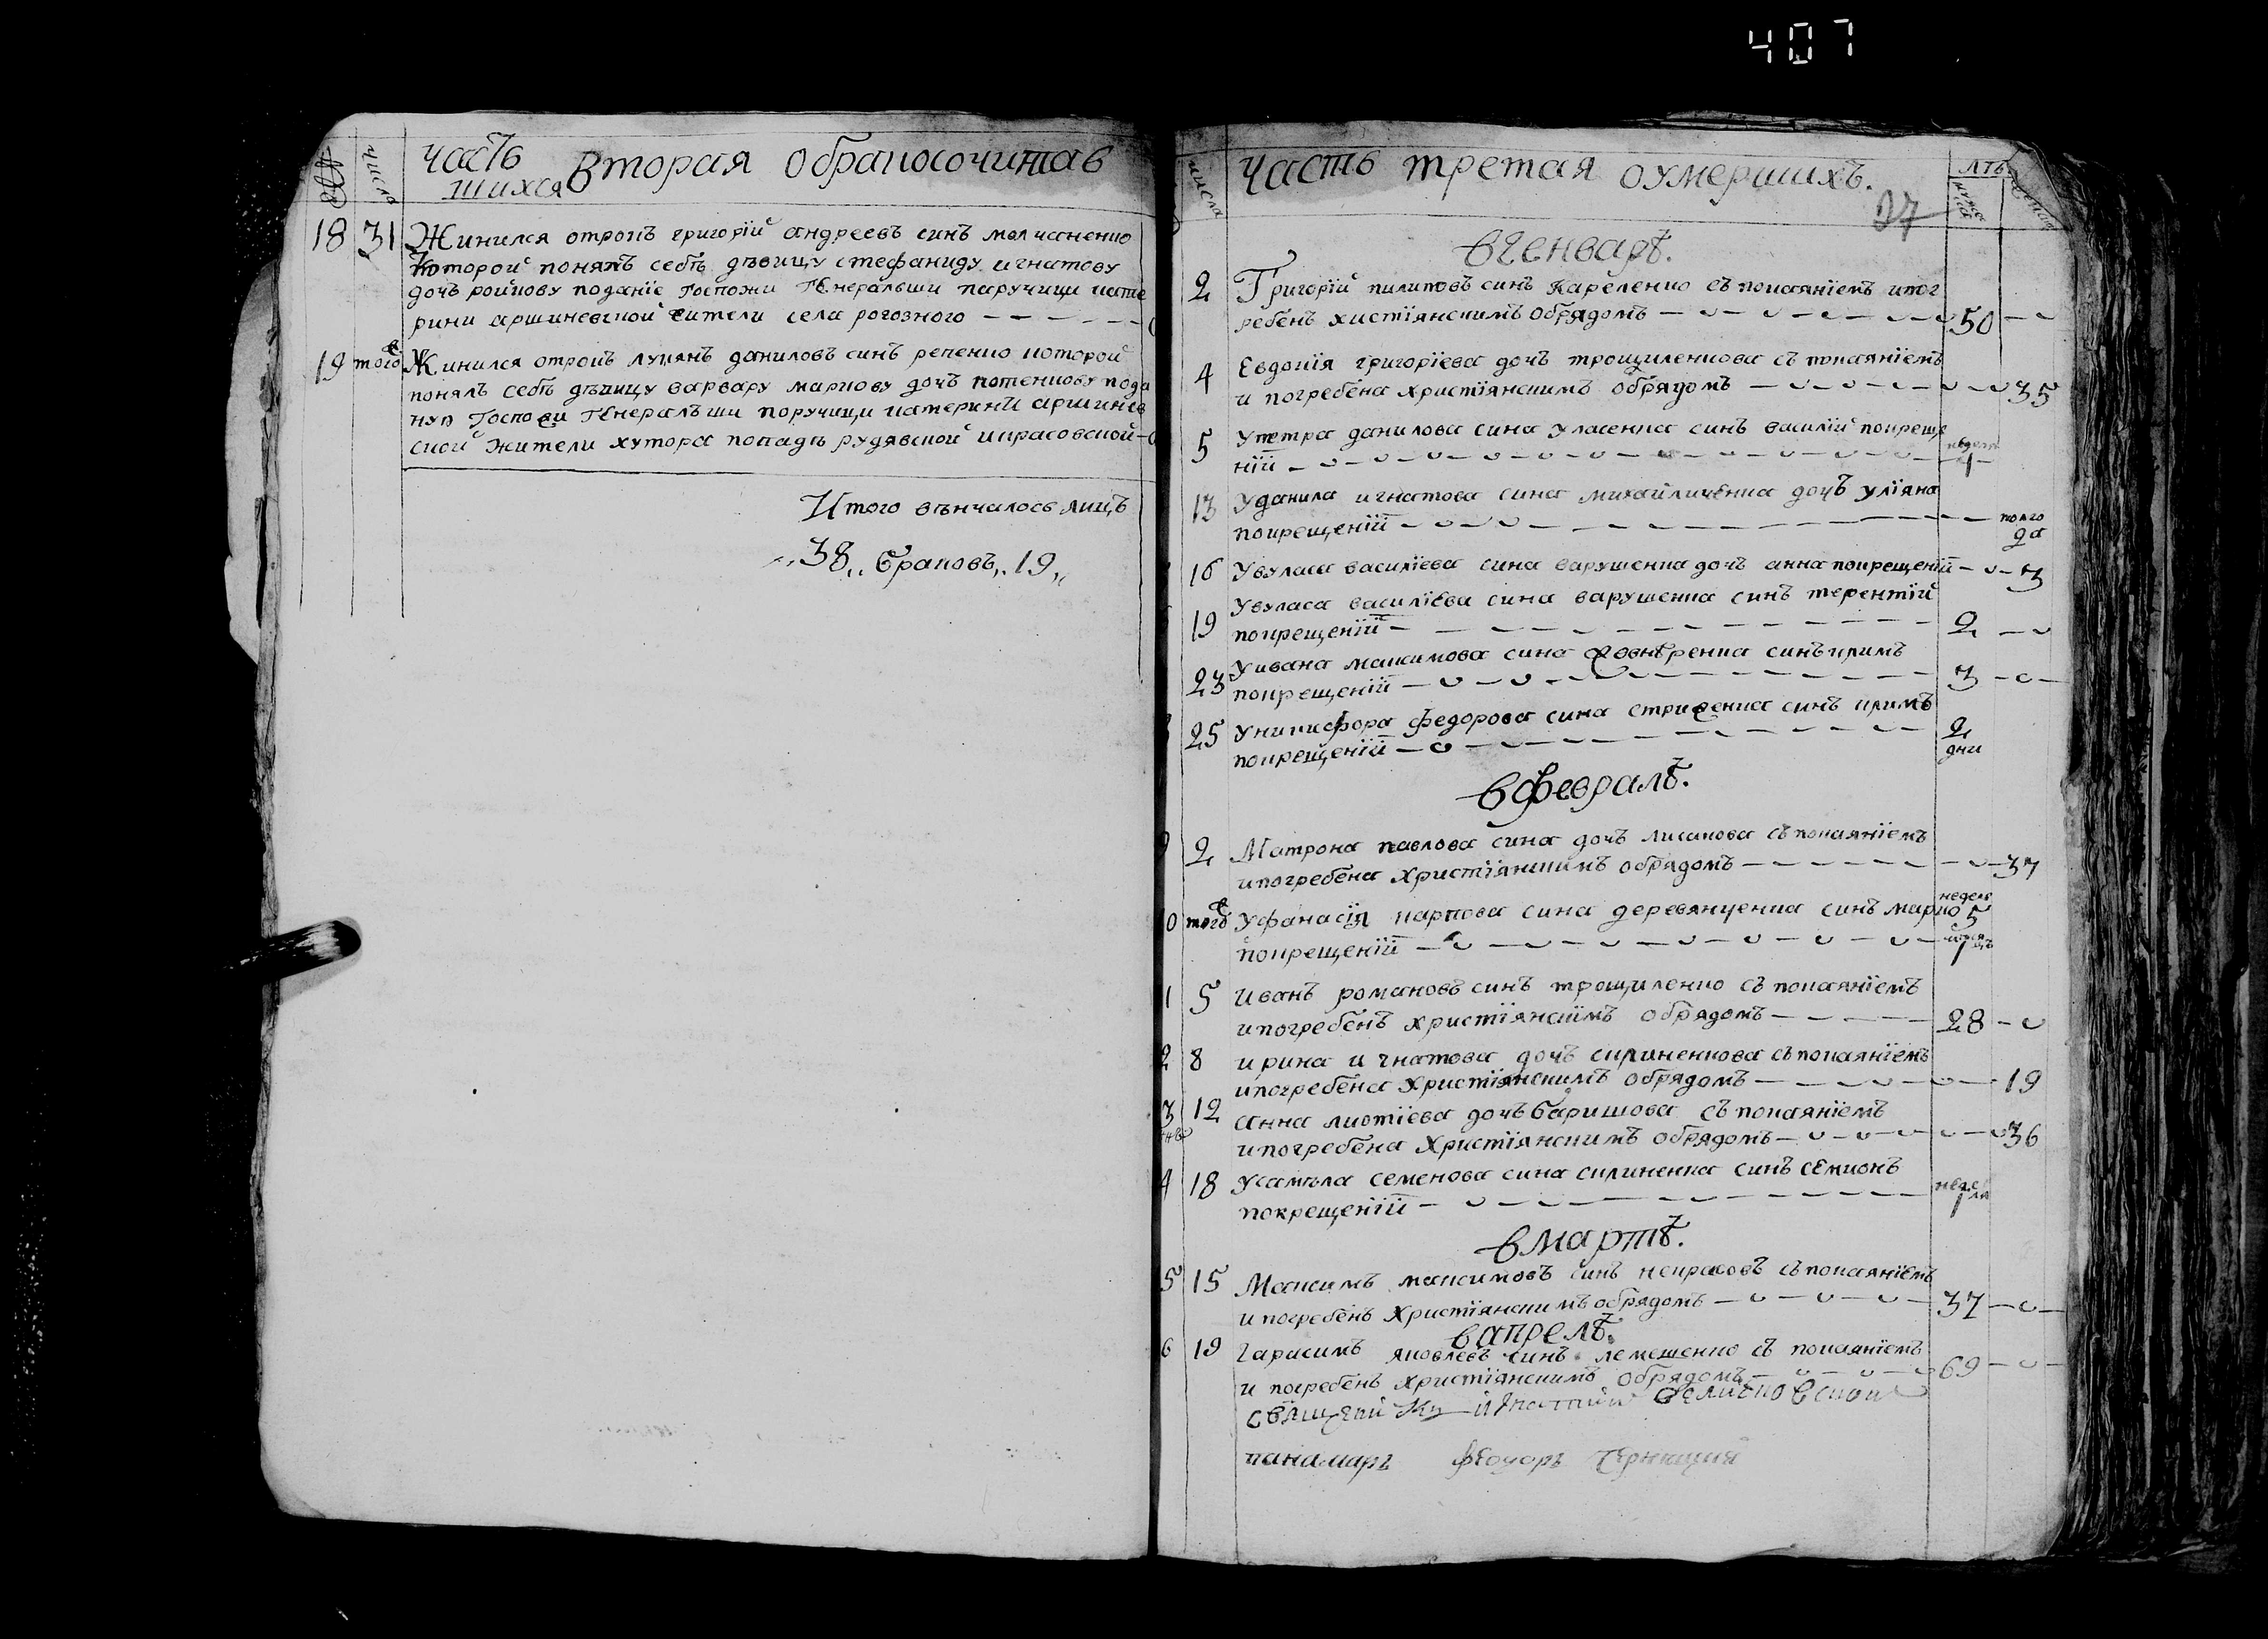 407
числа
часть вторая обракосочитав
шихся
18 31 Жинился отрокъ григорій андреевъ синъ молчаненко
которой понялъ себѣ дѣвицу стефаниду игнатову
дочь ройкову поданіе госпожи генеральши паручици кате
рини аршиневской жители села рогозного
19 того Жинился отрокъ лукянъ даниловъ синъ репенко которой
понялъ себѣ дѣвицу варвару маркову дочь потенкову пода
нуя госпожи генеральши поручици катерини аршинев
ской жители хутора попадѣ рудявской некрасовской
Итого вѣнчалось лицъ
„38„ браковъ„19„
числа
часть третая оумершихъ.
лѣтъ
27
вгенварѣ.
2 Григорій пилиповъ синъ кареленко съ покаяніемъ ипог
ребенъ хистіянскимъ обрядомъ 50
4 Евдокія григоріева дочъ трощиленкова съ покаяніемъ
и погребена христіянскимъ обрядомъ 35
5 Упетра данилова сина уласенка синъ василій покреще
ній
13 Уданила игнатова сина михайличенка дочъ уліяна
покрещеній полго
да
16 Увуласа василіева сина варушенка дочъ анна покрещеній 3
19 Увуласа василіева сина варушенка синъ терентій
покрещеній 2
23 Уивана максимова сина синъ климъ
покрещеній 3
25 Уникифора федорова сина стриженка синъ климъ
покрещеній 2
дни
вфевралѣ.
2 Матрона павлова сина дочъ лисакова съ покаяніемъ
ипогребена христіянскимъ обрядомъ 37
0 того Уфанасія карпова сина деревянченка синъ марко недель 5
покрещеній
1 5 иванъ романовъ синъ трощиленко съ покаяніемъ
ипогребенъ христіянскімъ обрядомъ 28
2 8 ирина игнатова дочъ силиненкова съ покаяніемъ
ипогребена христіянскимъ обрядомъ 19
3 12 анна лиотіева дочъ баришова съ покаяніемъ
ипогребена христіянскимъ обрядомъ 36
4 18 Усамъла семенова сина силиненка синъ семионъ неде
ля
покрещеній 1
вмартѣ.
5 15 Максимъ максимовъ синъ некрасовъ съ покаяніемъ
и погребенъ христіянскимъ обрядомъ 37
вапрелѣ.
6 19 гарасимъ яковлевъ синъ лемешенко съ покаяніемъ
и погребенъ христіянскимъ обрядомъ 69
Игнатий
панамарь феодоръ